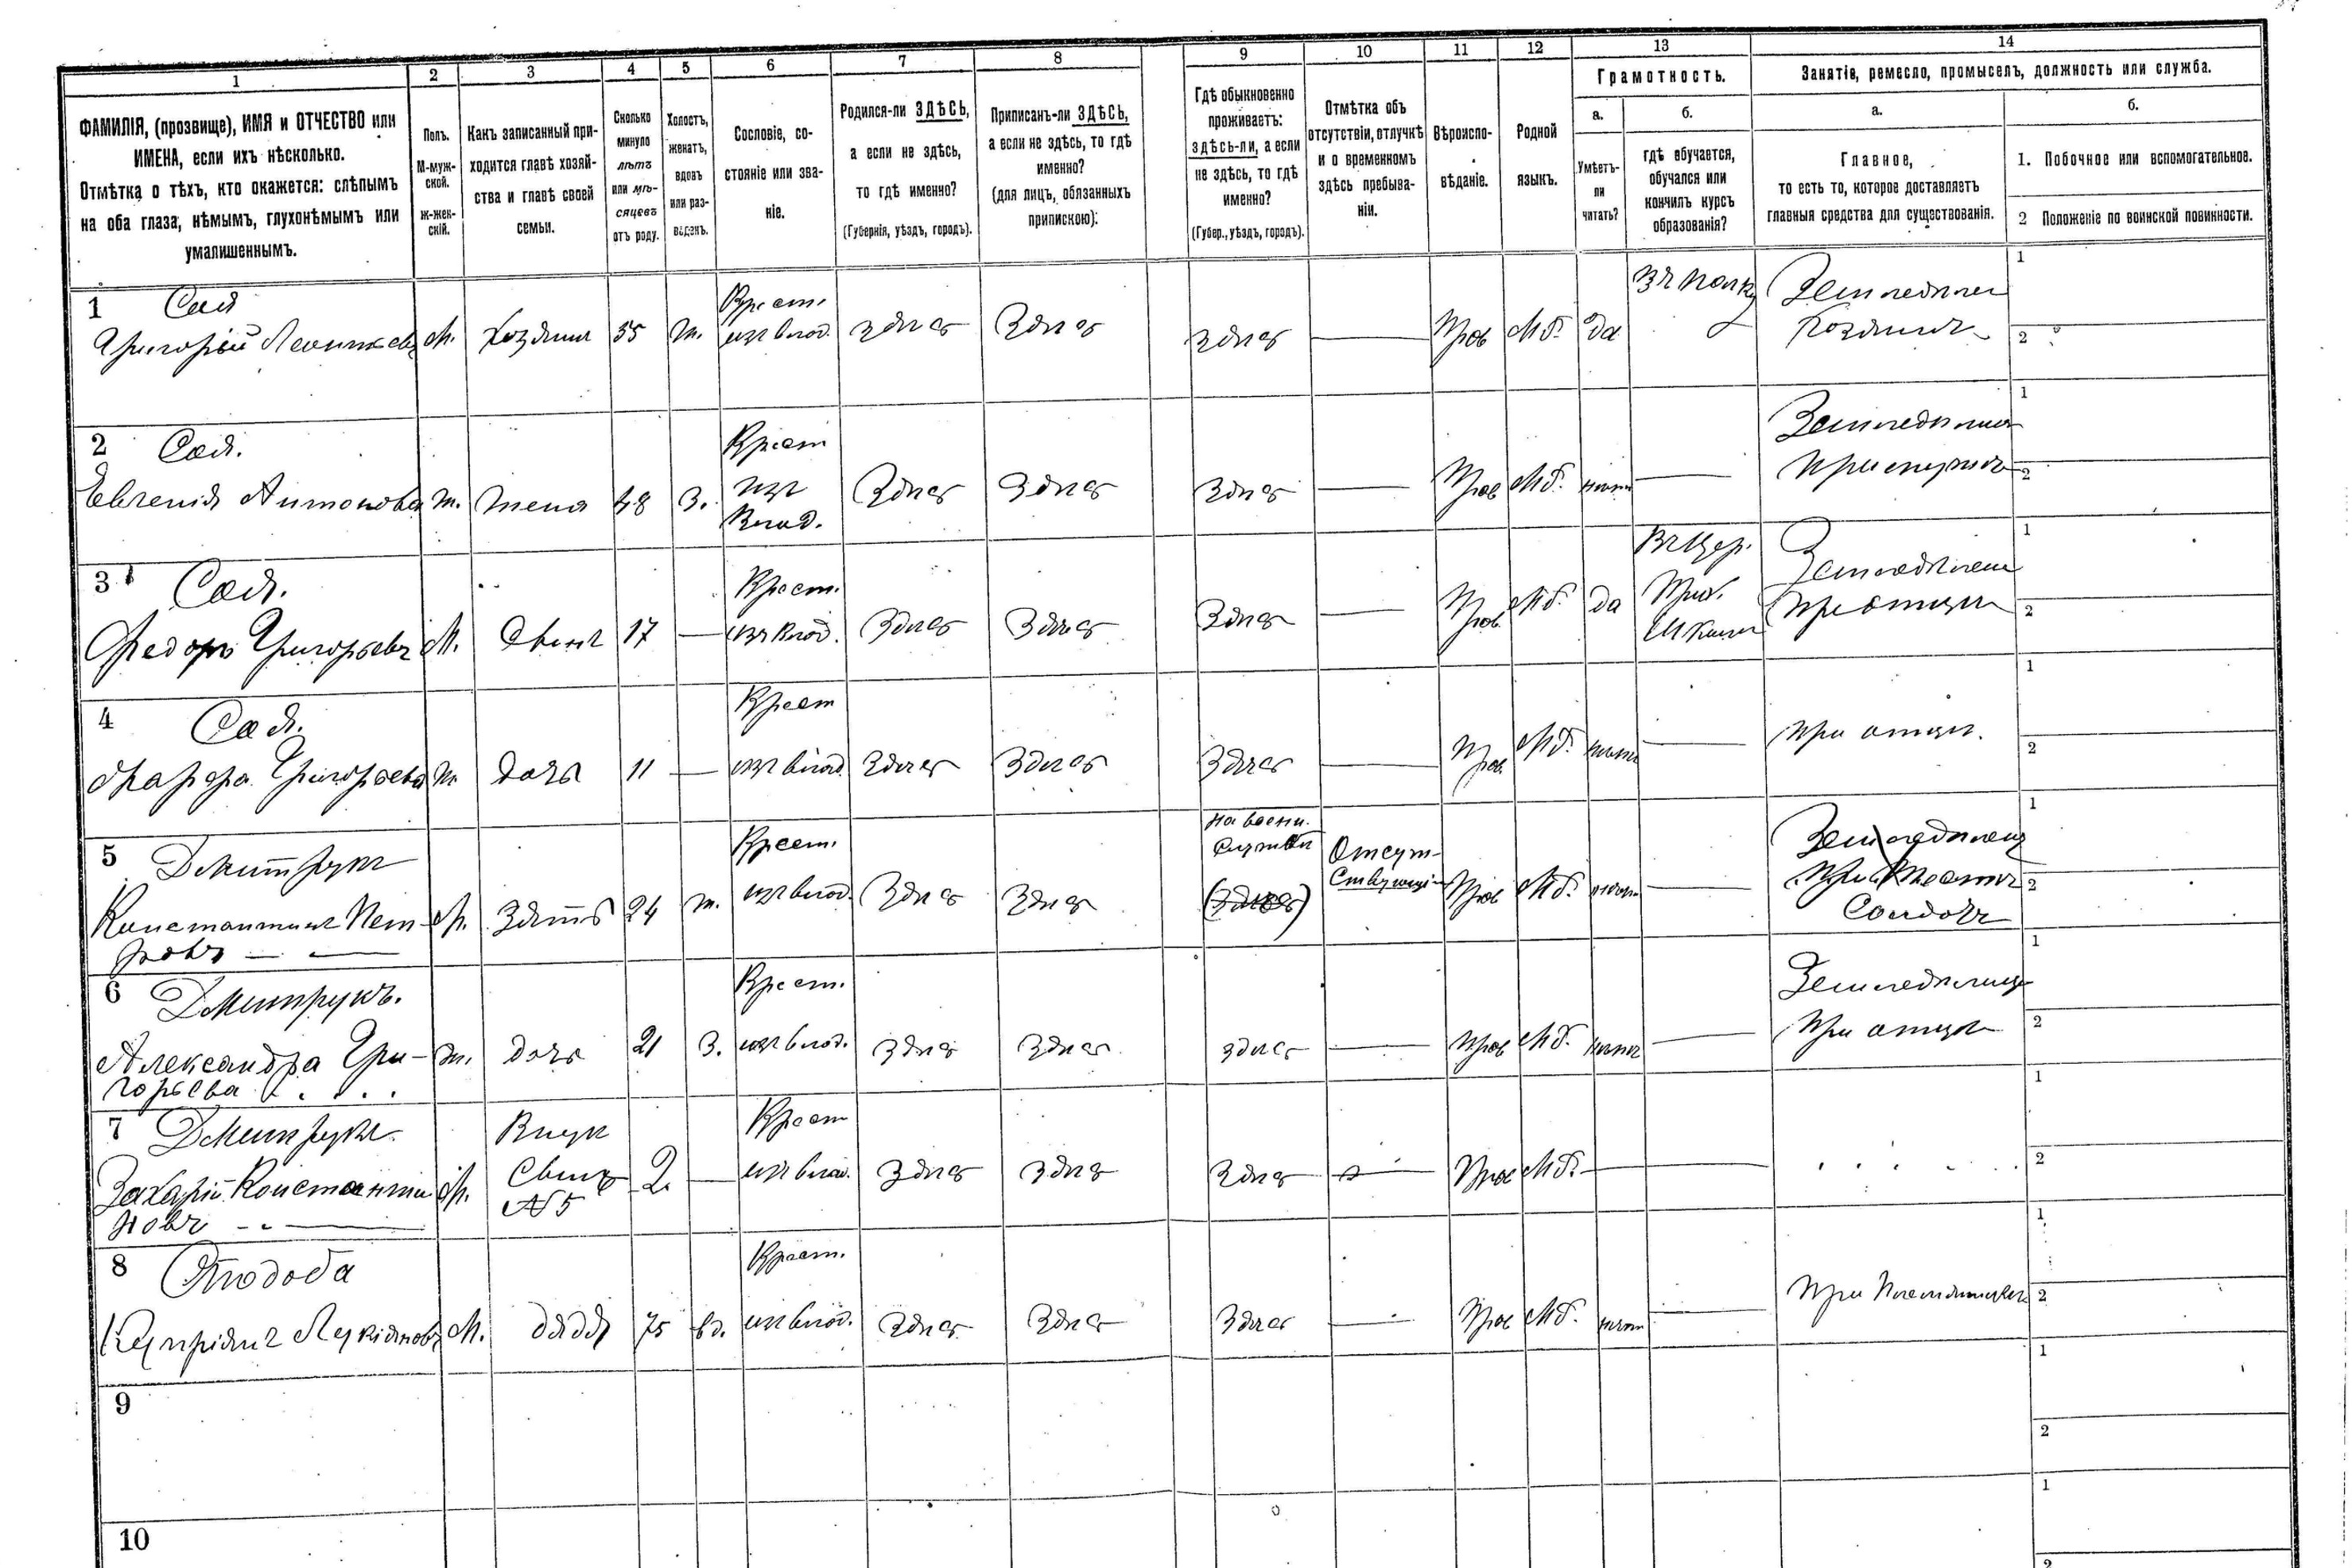 1 2 3 4 5 6 7 8 9 10 11 12 13 14
ФАМИЛІЯ, (прозвище), ИМЯ и ОТЧЕСТВО или
ИМЕНА, если ихъ нѣсколько.
Отмѣтка о тѣхъ, кто окажется: слѣпымъ
на оба глаза, нѣмымъ, глухонѣмымъ или
умалишеннымъ.
Полъ.
М-муж-
ской.
ж-жен-
скій.
Какъ записанный при-
ходится главѣ хозяй-
ства и главѣ своей
семьи.
Сколько
минуло
лѣтъ
или мѣ-
сяцевъ
отъ роду.
Холостъ,
женатъ,
вдовъ
или раз-
веденъ.
Сословіе, со-
стояніе или зва-
ніе.
Родился-ли ЗДѢСЬ,
а если не здѣсь,
то гдѣ именно?
(Губернія, уѣздъ, городъ).
Приписанъ-ли ЗДѢСЬ,
а если не здѣсь, то гдѣ
именно?
(для лицъ, обязанныхъ
припискою):
Гдѣ обыкновенно
проживаетъ:
здѣсь-ли, а если
не здѣсь, то гдѣ
именно?
(Губер., уѣздъ, городъ).
Отмѣтка объ
отсутствіи, отлучкѣ
и о временномъ
здѣсь пребыва-
ніи.
Вѣроиспо-
вѣданіе.
Родной
языкъ.
Грамотность.
а.
Умѣетъ-
ли
читать?
б.
гдѣ обучается,
обучался или
кончилъ курсъ
образованія?
Занятіе, ремесло, промыселъ, должность или служба.
а.
Главное,
то есть то, которое доставляетъ
главныя средства для существованія.
б.
1. Побочное или вспомогательное.
2 Положеніе по воинской повинности.
1 Сая Крест. Въ полку Земледѣлец 1
Григорій М. Хозяинъ 55 ж. изъ влад. здѣсь Здѣсь здѣсь — Прав Мб. да Хозяинъ 2
2 Сая. Крест Земледѣлец 1
Евгенія Антонова ж. жена 48 З. изъ Здѣсь Здѣсь Здѣсь — Прав Мб. нѣтъ — при мужѣ 2
Влад.
3 Сая. Крест. Въ Цер. Земледѣлец 1
Федоръ Григорьевъ М. Сынъ 17 — изъ влад. Здѣсь Здѣсь Здѣсь — Прав. Мб. да Прих. при отцѣ 2
Школѣ
4 Сая. Крест 1
Григорьева ж дочь 11 — изъ влад Здѣсь Здѣсь Здѣсь — Прав. Мб. нѣтъ — при отцѣ. 2
5 Дмитрукъ Крест. На воен. Отсут- Земледѣлец 1
службѣ ствующій
Константинъ Пет- М. Зять 24 ж. изъ влад. Здѣсь Здѣсь (Здѣсь) Прав Мб. — при тестѣ 2
ровъ — — Солдатъ
6 Дмитрукъ. Крест. Земледѣлец 1
Александра Гри- ж. дочь 21 З. изъ влад. здѣсь Здѣсь здѣсь — прав Мб. нѣтъ — при отцѣ 2
горьева
7 Дмитрукъ Внук Крест 1
Захарій Константи М. 2 — изъ влад. Здѣсь Здѣсь Здѣсь — Прав Мб. — 2
новъ — N 5
8 Крест. 1
Кипріянъ Лукіановъ М. дядя 75 вд. изъ влад. Здѣсь Здѣсь Здѣсь — Прав Мб. нѣтъ — при племянникѣ 2
9 1
2
10 1
2